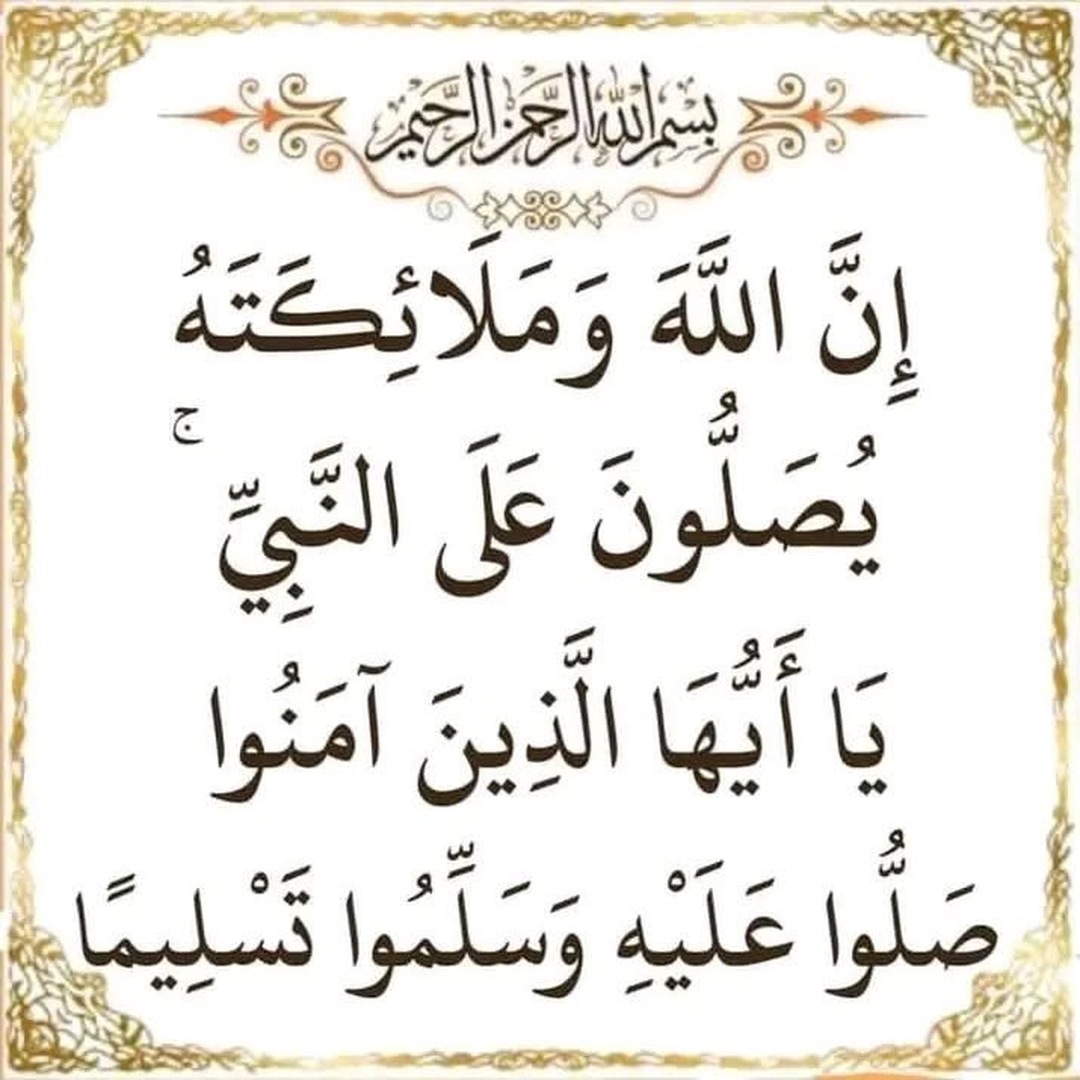 بِسْمِ اللهِ الرَّحْمٰنِ الرَّحِيْمِ
إِنَّ اللَّهَ وَمَلَائِكَتَهُ
يُصَلُّونَ عَلَى النَّبِيِّ ۚ
يَا أَيُّهَا الَّذِينَ آمَنُوا
صَلُّوا عَلَيْهِ وَسَلِّمُوا تَسْلِيمًا